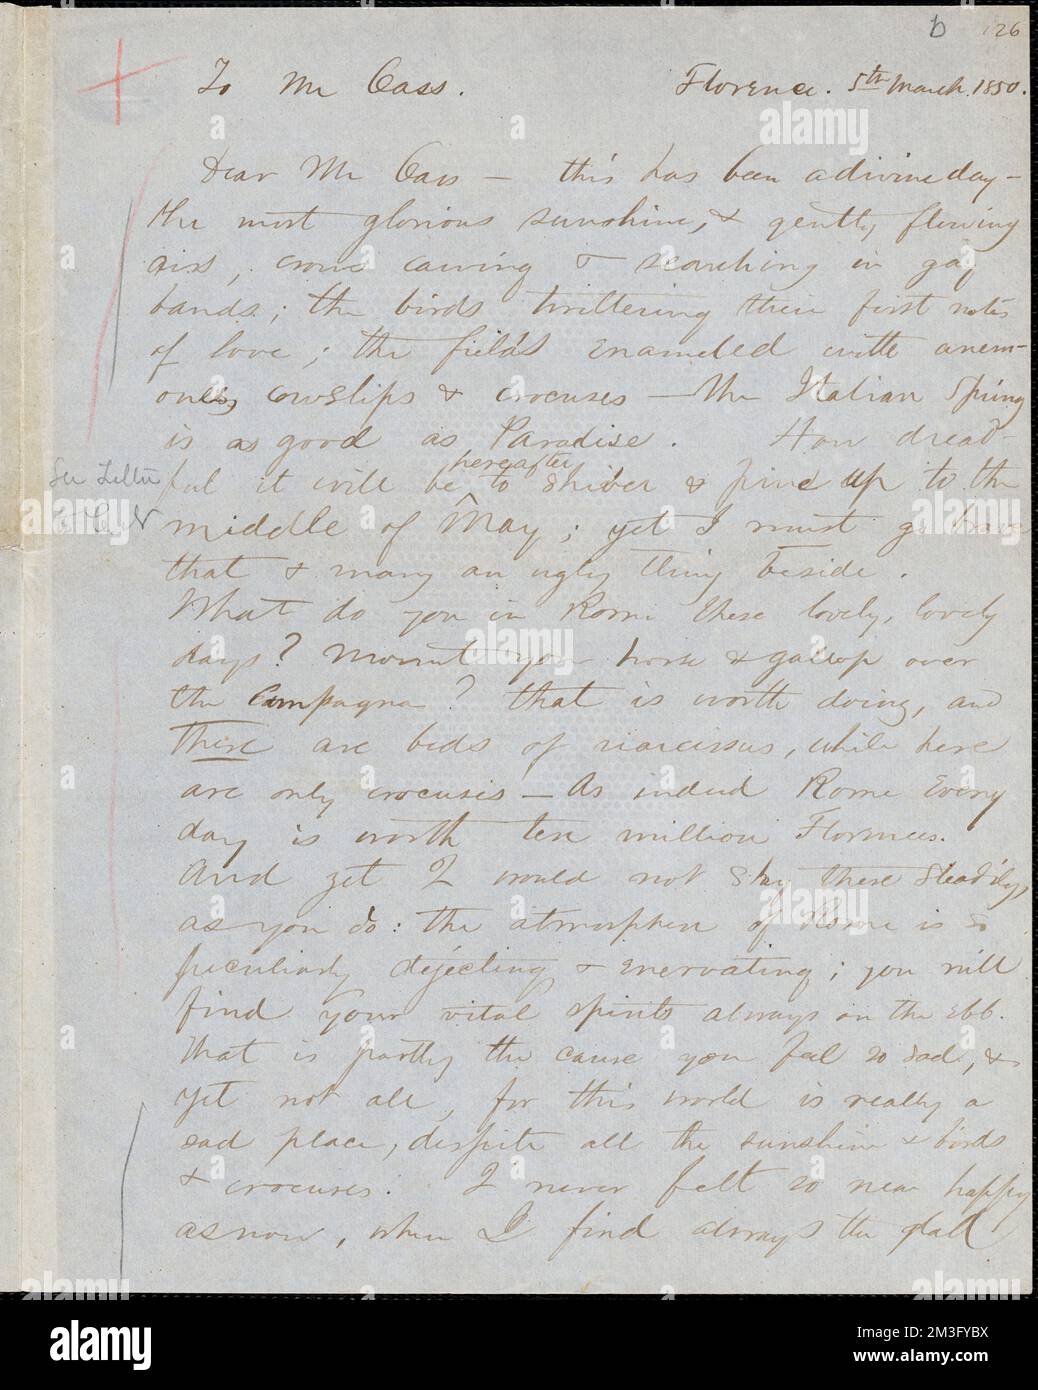 b 126
To Mr Cass. Florence. 5th March. 1850.
Dear Mr Cass — this has been a divine day —
the most glorious sunshine, & gently flowing
airs, crows cawing & searching in gay
bands; the birds twittering their first notes
of love; the fields enameled with anem-
ones, cowslips & crocuses — the Italian Spring
is as good as Paradise. How dread-
hereafter
ful it will be ^ to shiver & pine up to the
See Letter
middle of May; yet I must go brave
that & many an ugly thing beside.
What do you in Rome these lovely, lovely
days? Mount your horse & gallop over
the Campagna? that is worth doing, and
there are beds of narcissus, while here
are only crocuses — As indeed Rome every
day is worth ten million Florences.
And yet I would not stay there steadily,
as you do: the atmosphere of Rome is so
peculiarly dejecting & enervating; you will
find your vital spirits always on the ebb.
That is partly the cause you feel so sad, &
yet not all, for this world is really a
sad place, despite all the sunshine & birds
& crocuses. I never felt so near happy
as now, when I find always the glad
alamy
Image ID: 2M3FYBX
www.alamy.com